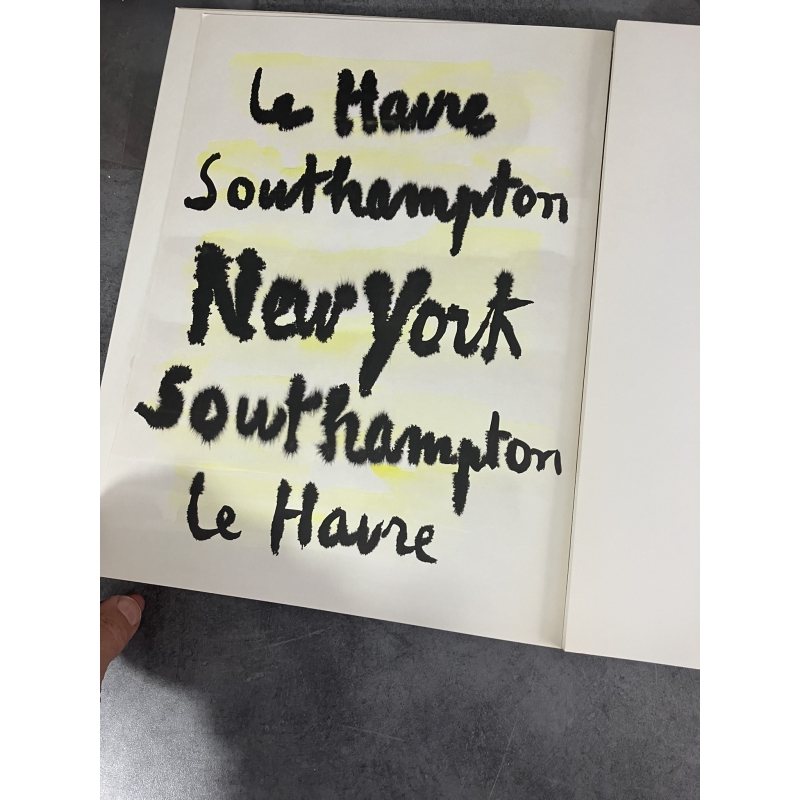 Le Havre
Southampton
New York
Southampton
Le Havre